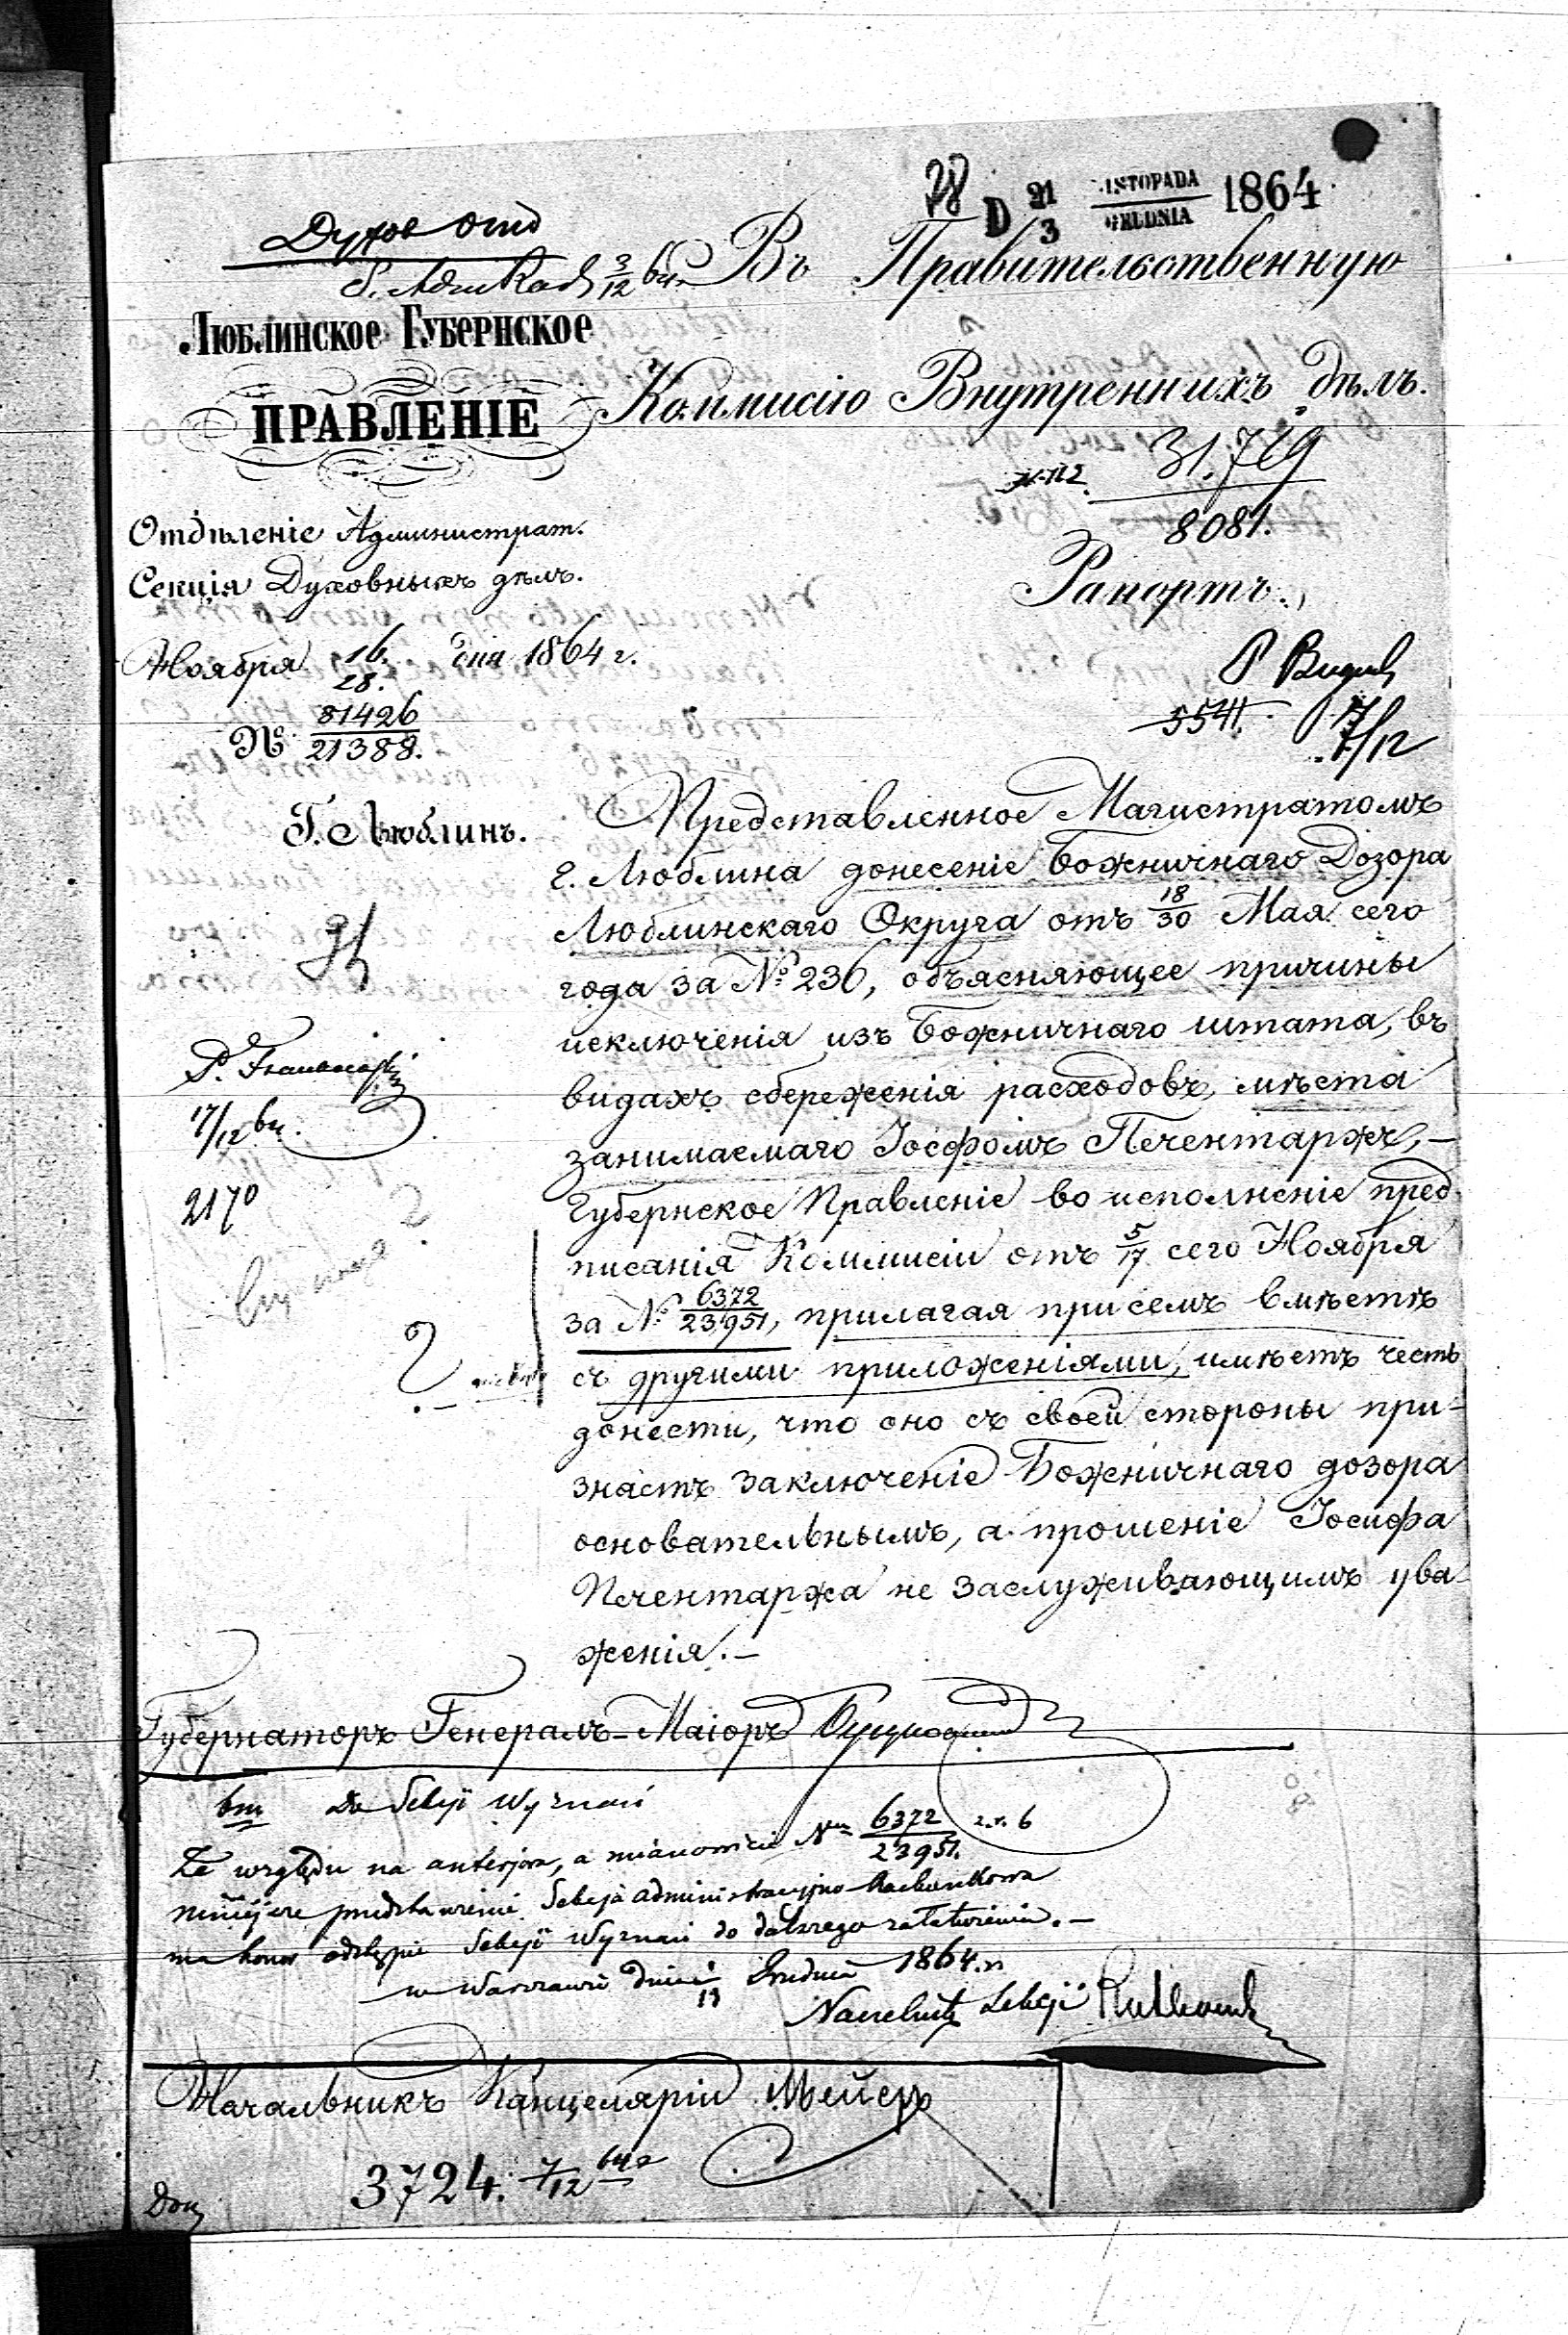 78
D 21/3 LISTOPADA/GRUDNIA 1864
Духов Отд
S. Adm Rach 3/12 64
Въ Правительственную
Коммисію Внутреннихъ дѣлъ.
ЛЮБЛИНСКОЕ ГУБЕРНСКОЕ
ПРАВЛЕНІЕ
31.729
8081.
Отдѣленіе Администрат.
Секція Духовныхъ дѣлъ.
Рапортъ.
Ноября 16./28. дня 1864 г.
№ 81426/21388.
5541.
7/12
Г. Люблинъ.
Представленное Магистратомъ
г. Люблина донесеніе Божничнаго Дозора
Люблинскаго Округа отъ 18/30 Мая сего
года за № 236, объясняющее причины
исключенія изъ Божничнаго штата, въ
видахъ сбереженія расходовъ, мѣста
занимаемаго Іосфомъ Печентаржъ, —
Губернское Правленіе во исполненіе пред-
писанія Коммисіи отъ 5/17 сего Ноября
за № 6372/23951, прилагая при семъ вмѣстѣ
съ другими приложеніями, имѣетъ честь
донести, что оно съ своей стороны при-
знаетъ заключеніе Божничнаго дозора
основательнымъ, а прошеніе Іосифа
Печентаржа не заслуживающимъ ува-
женія. —
17/12
2170
?
Губернаторъ Генералъ-Маіоръ
Do Sekcji Wyznań
Ze względu na anterjora, a mianowicie Nr 6372/23951. z r. b
niniejsze przedstawienie Sekcja Administracyjno-Rachunkowa
ma honor odstąpić Sekcji Wyznań do dalszego załatwienia. —
w Warszawie dnia Grudnia 1864 r.
Naczelnik Sekcji
Начальникъ Канцеляріи Мейеръ
3724. 7/12 64